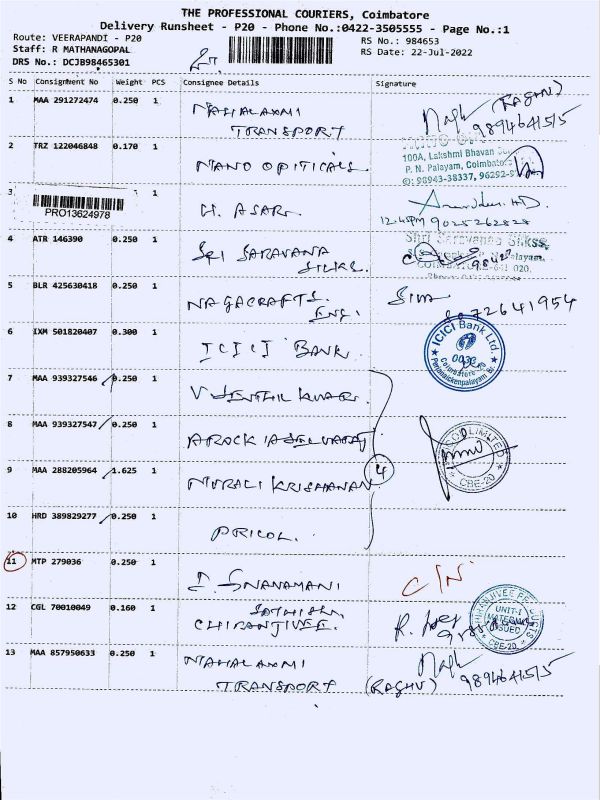 THE PROFESSIONAL COURIERS, Coimbatore
Delivery Runsheet - P20 - Phone No.:0422-3505555 - Page No.:1
Route: VEERAPANDI - P20
RS No.: 984653
Staff: R MATHANAGOPAL
RS Date: 22-Jul-2022
DRS No.: DCJB98465301
S No Consignment No Weight PCS Consignee Details Signature
1 MAA 291272474 0.250 1 MAHALAXMI (RAGHU)
TRANSPORT 9894641515
2 TRZ 122046848 0.170 1 NANO OPITICALS
100A, Lakshmi Bhavan
P. N. Palayam, Coimbatore
98943-38337, 96292-
3 1 H. ASAR.
PRO13624978
12:45PM 9025262828
4 ATR 146390 0.250 1 SRI SARAVANA
SILKS.
Shri Saravanaa Silkss
5 BLR 425630418 0.250 1 NAGACRAFTS.
ENG.
Siva
9072641954
6 IXM 501820407 0.300 1 ICICI BANK
ICICI Bank Ltd.
7 MAA 939327546 0.250 1 V SENTHIL KUMAR.
8 MAA 939327547 0.250 1 AROCKIASELVARAJ
9 MAA 288205964 1.625 1 MURALI KRISHANAN
4
LIMITED
CBE-20
10 HRD 389829277 0.250 1 PRICOL.
11 MTP 279036 0.250 1 C/N
12 CGL 70010049 0.160 1 SATHISH,
CHIRANJIVEE.
UNIT-I
CBE-20
13 MAA 857950633 0.250 1 MAHALAXMI
TRANSPORT (RAGHU) 9894641515